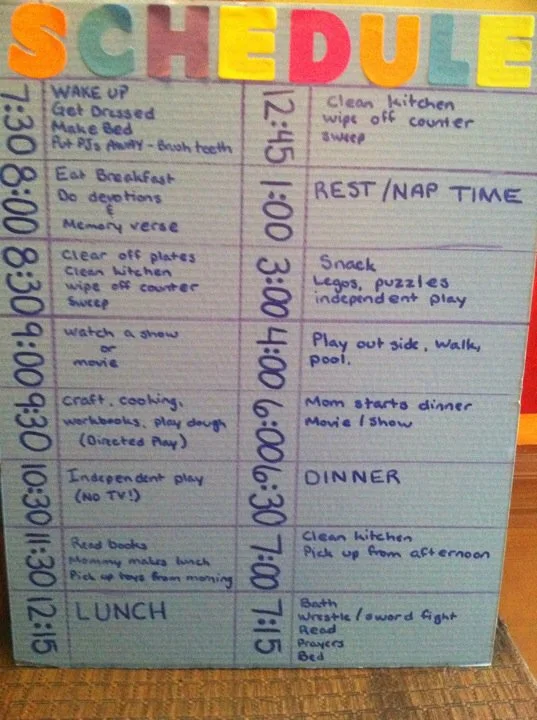 SCHEDULE
7:30
WAKE UP
Get Dressed
Make Bed
Put PJs AWAY - Brush teeth
8:00
Eat Breakfast
Do devotions
&
Memory verse
8:30
Clear off plates
Clean kitchen
wipe off counter
Sweep
9:00
watch a show
or
movie
9:30
craft, cooking,
workbooks, play dough
(Directed Play)
10:30
Independent play
(NO TV!)
11:30
Read books
Mommy makes lunch
Pick up toys from morning
12:15
LUNCH
12:45
Clean kitchen
wipe off counter
sweep
1:00
REST/NAP TIME
3:00
Snack
Legos, puzzles
independent play
4:00
Play out side, walk,
pool.
6:00
Mom starts dinner
Movie/Show
6:30
DINNER
7:00
Clean kitchen
Pick up from afternoon
7:15
Bath
Wrestle/sword fight
Read
Prayers
Bed